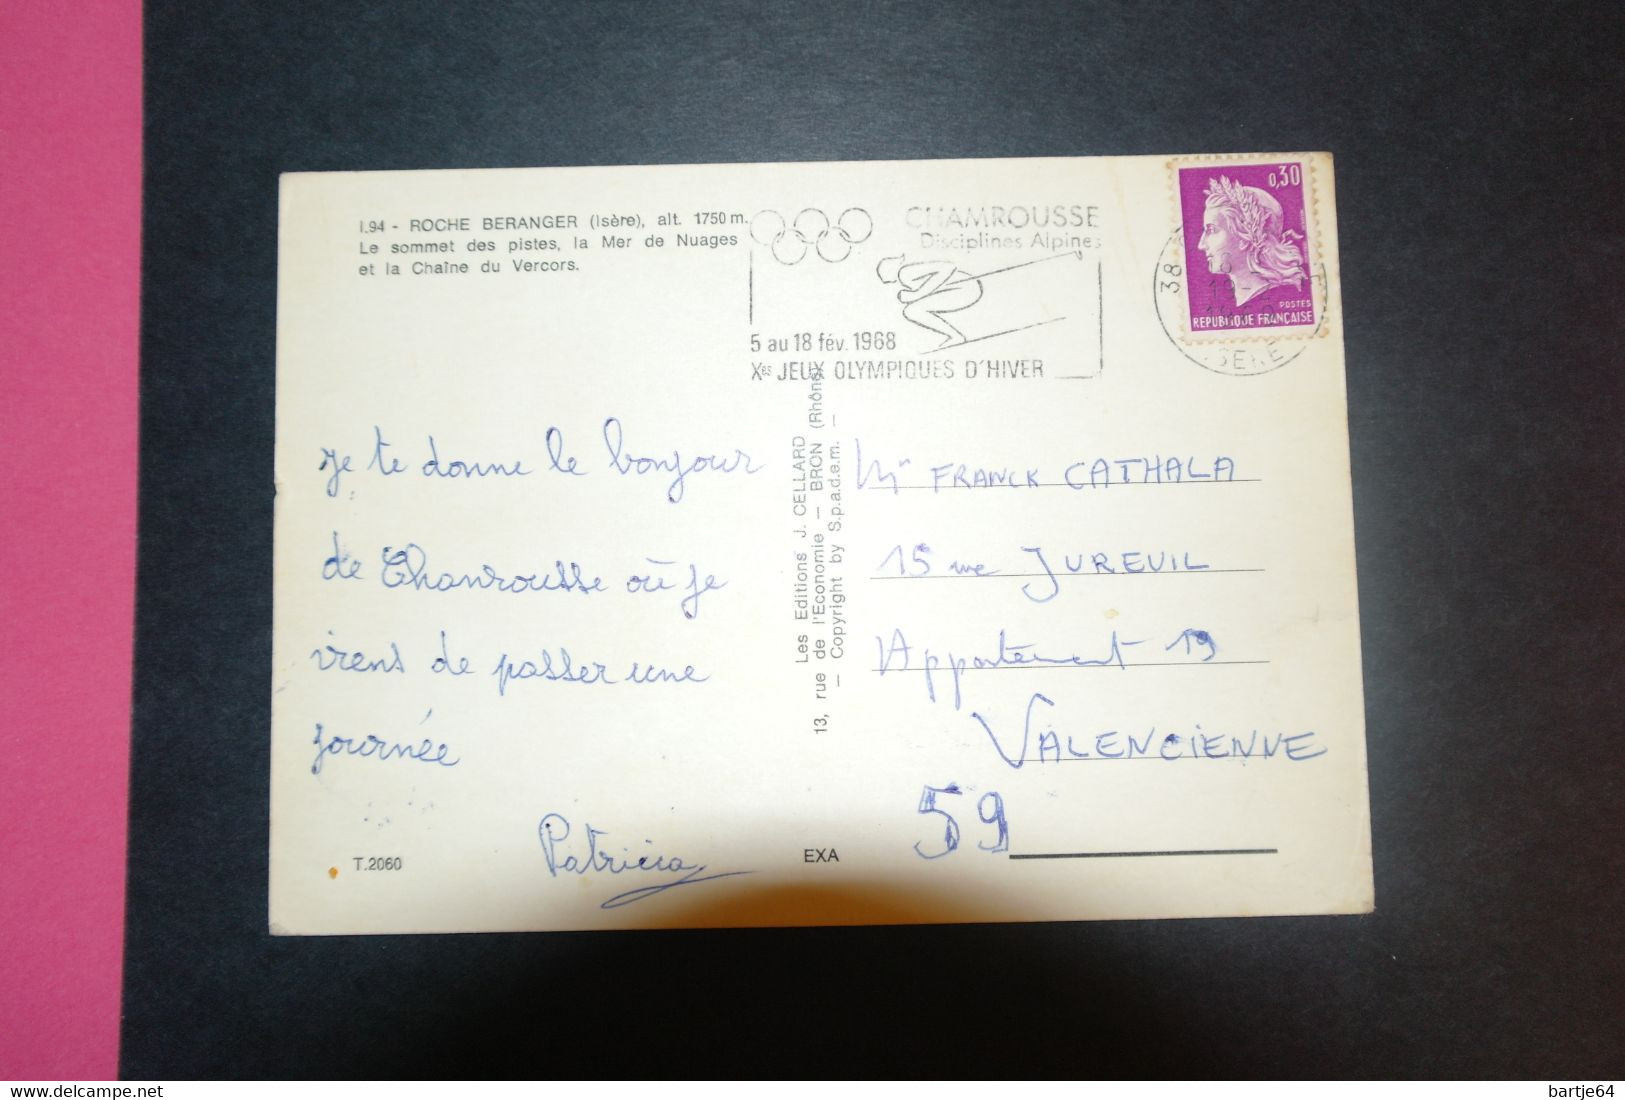 I.94 - ROCHE BERANGER (Isère), alt. 1750 m.
Le sommet des pistes, la Mer de Nuages
et la Chaîne du Vercors.
CHAMROUSSE
Disciplines Alpines
5 au 18 fév. 1968
Xes JEUX OLYMPIQUES D'HIVER
0,30
POSTES
REPUBLIQUE FRANÇAISE
38
ISERE
je te donne le bonjour
de Chamrousse où je
viens de passer une
journée
Patricia
Les Editions J. CELLARD
13, rue de l'Economie — BRON (Rhône)
— Copyright by S.p.a.d.e.m. —
Mr FRANCK CATHALA
15 rue JUREUIL
Appartement 19
VALENCIENNE
59
T.2060
EXA
bartje64